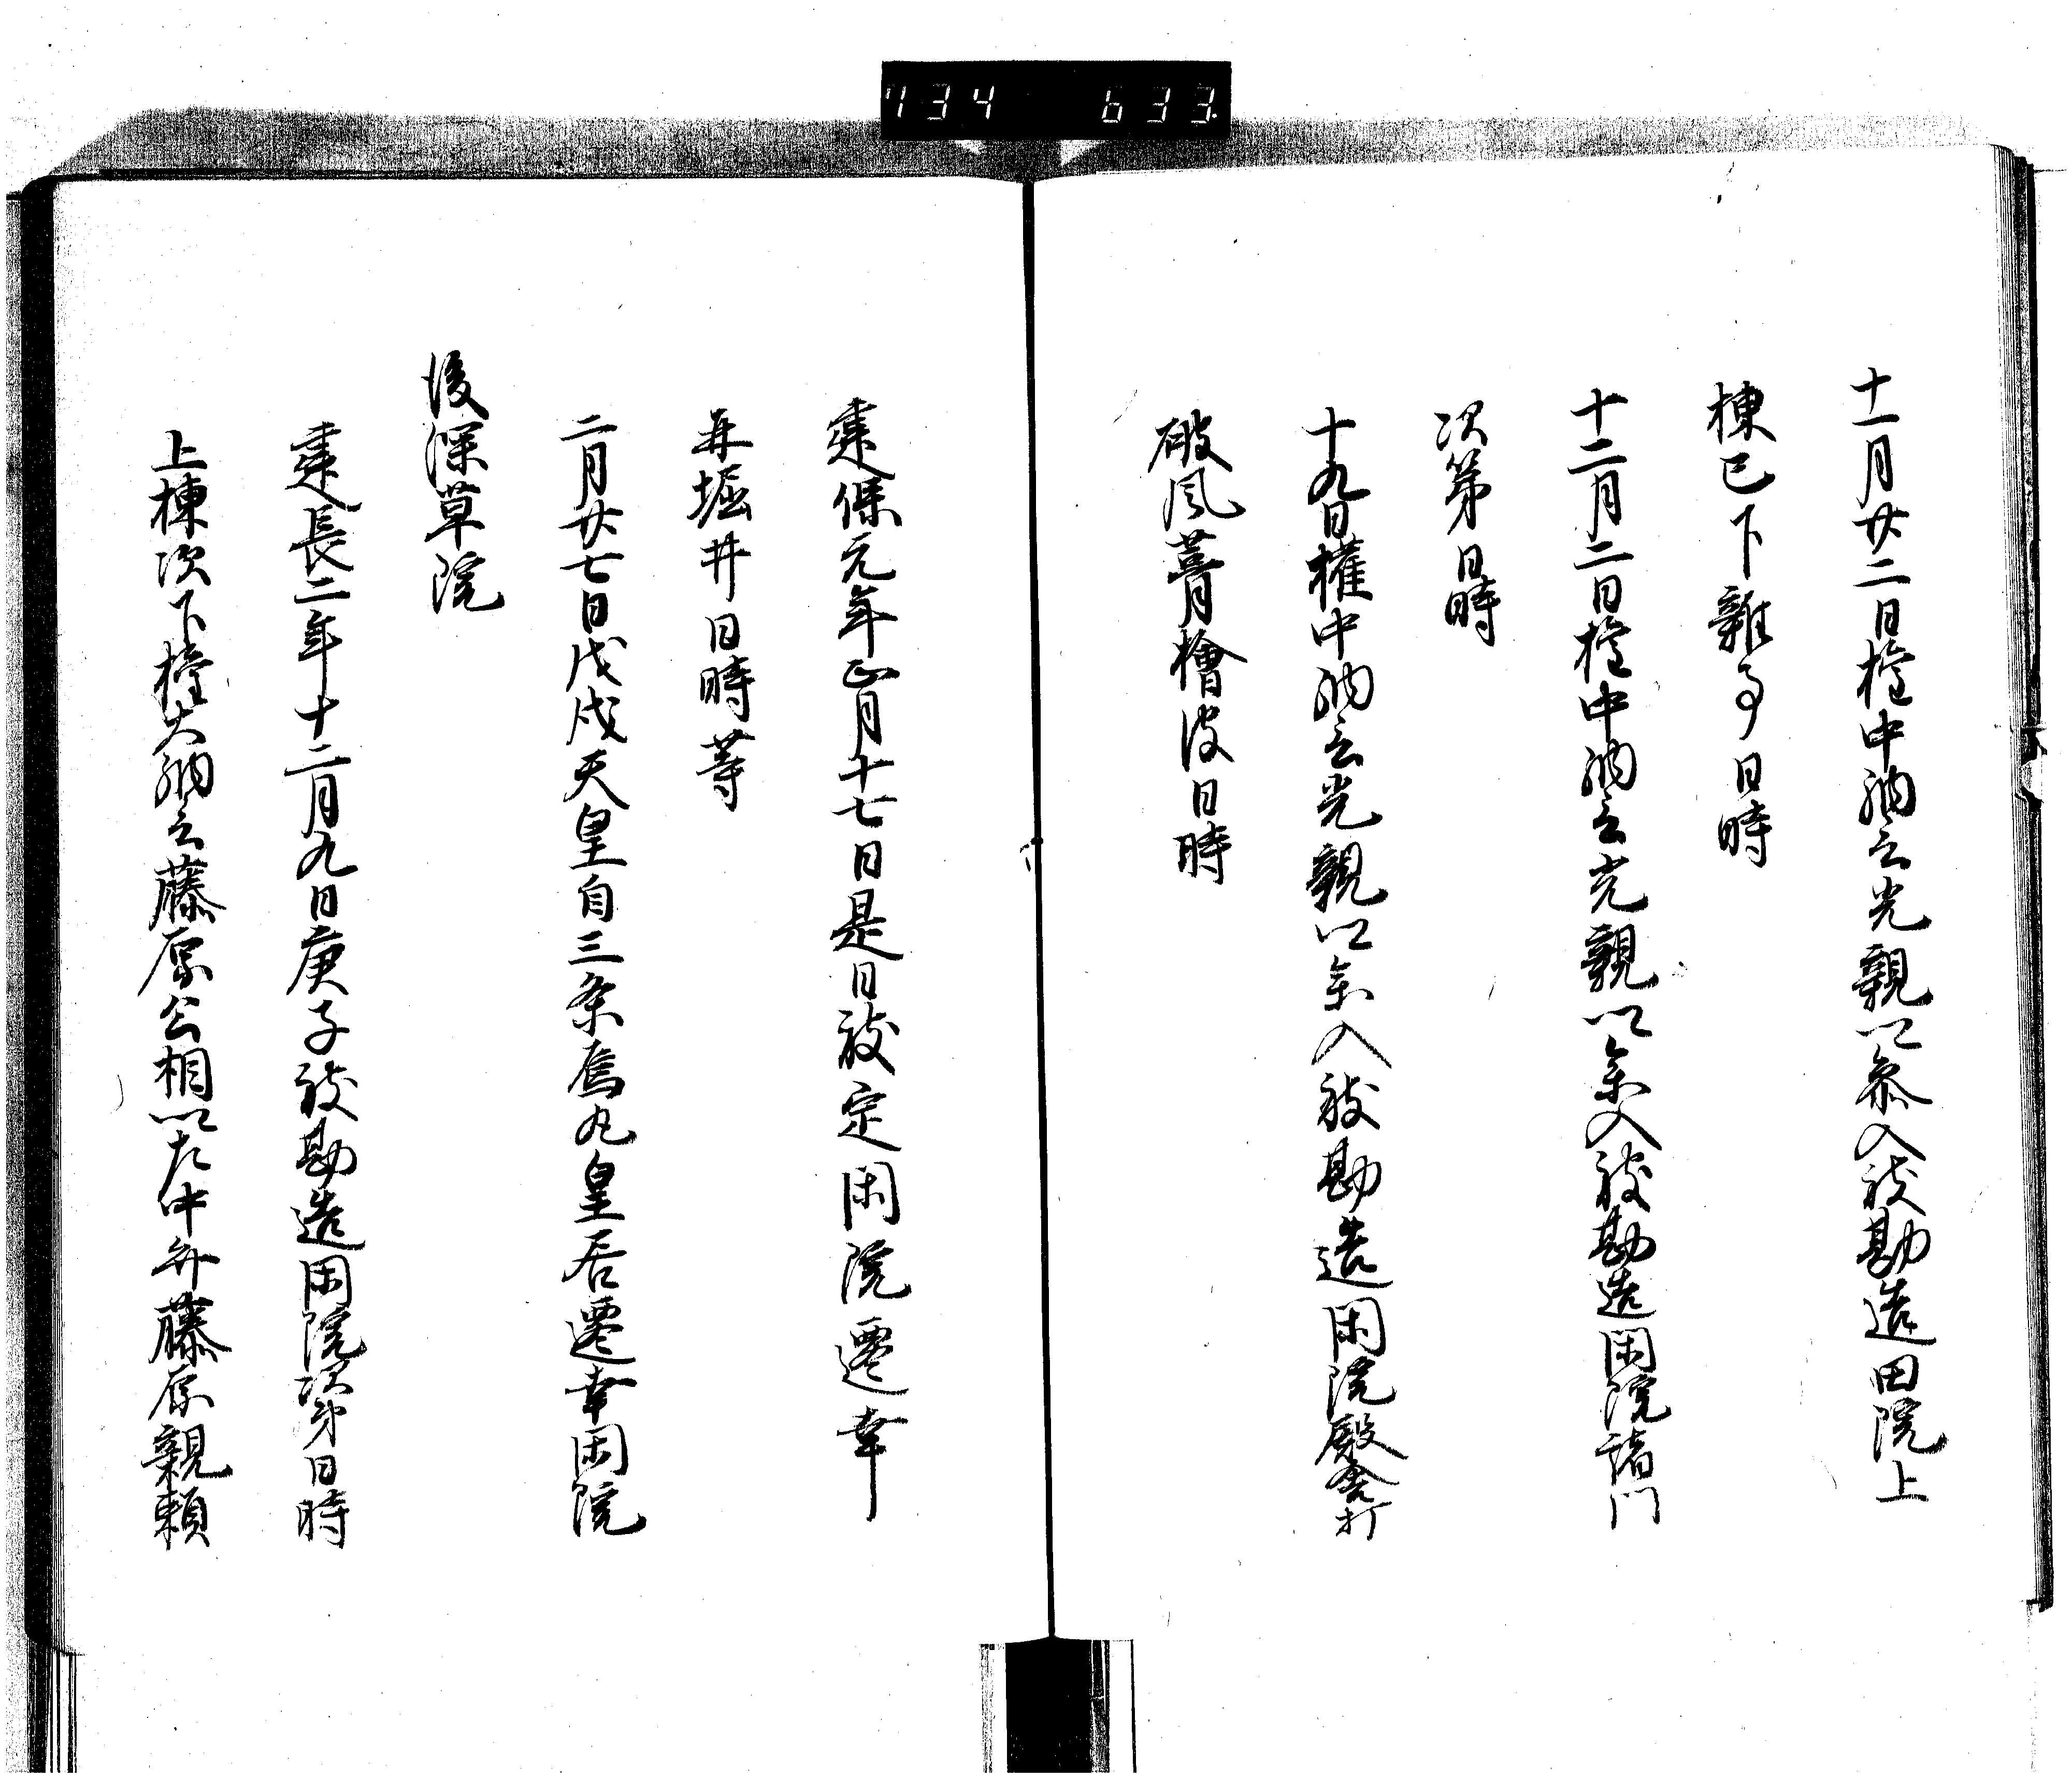 734 633
十一月廿二日権中納言光親以参入被勘造田院上
棟已下雑事日時
十二月二日権中納言光親以参入被勘造閑院諸門
次第日時
十九日權中納言光親以参入被勘造閑院殿舎打
破風葺檜皮日時
建保元年正月十七日是日被定閑院遷幸
并堀井日時等
二月廿七日戊戌天皇自三条烏丸皇居遷幸閑院
後深草院
建長二年十二月九日庚子被勘造閑院次第日時
上棟次下権大納言藤原公相以左中弁藤原親頼